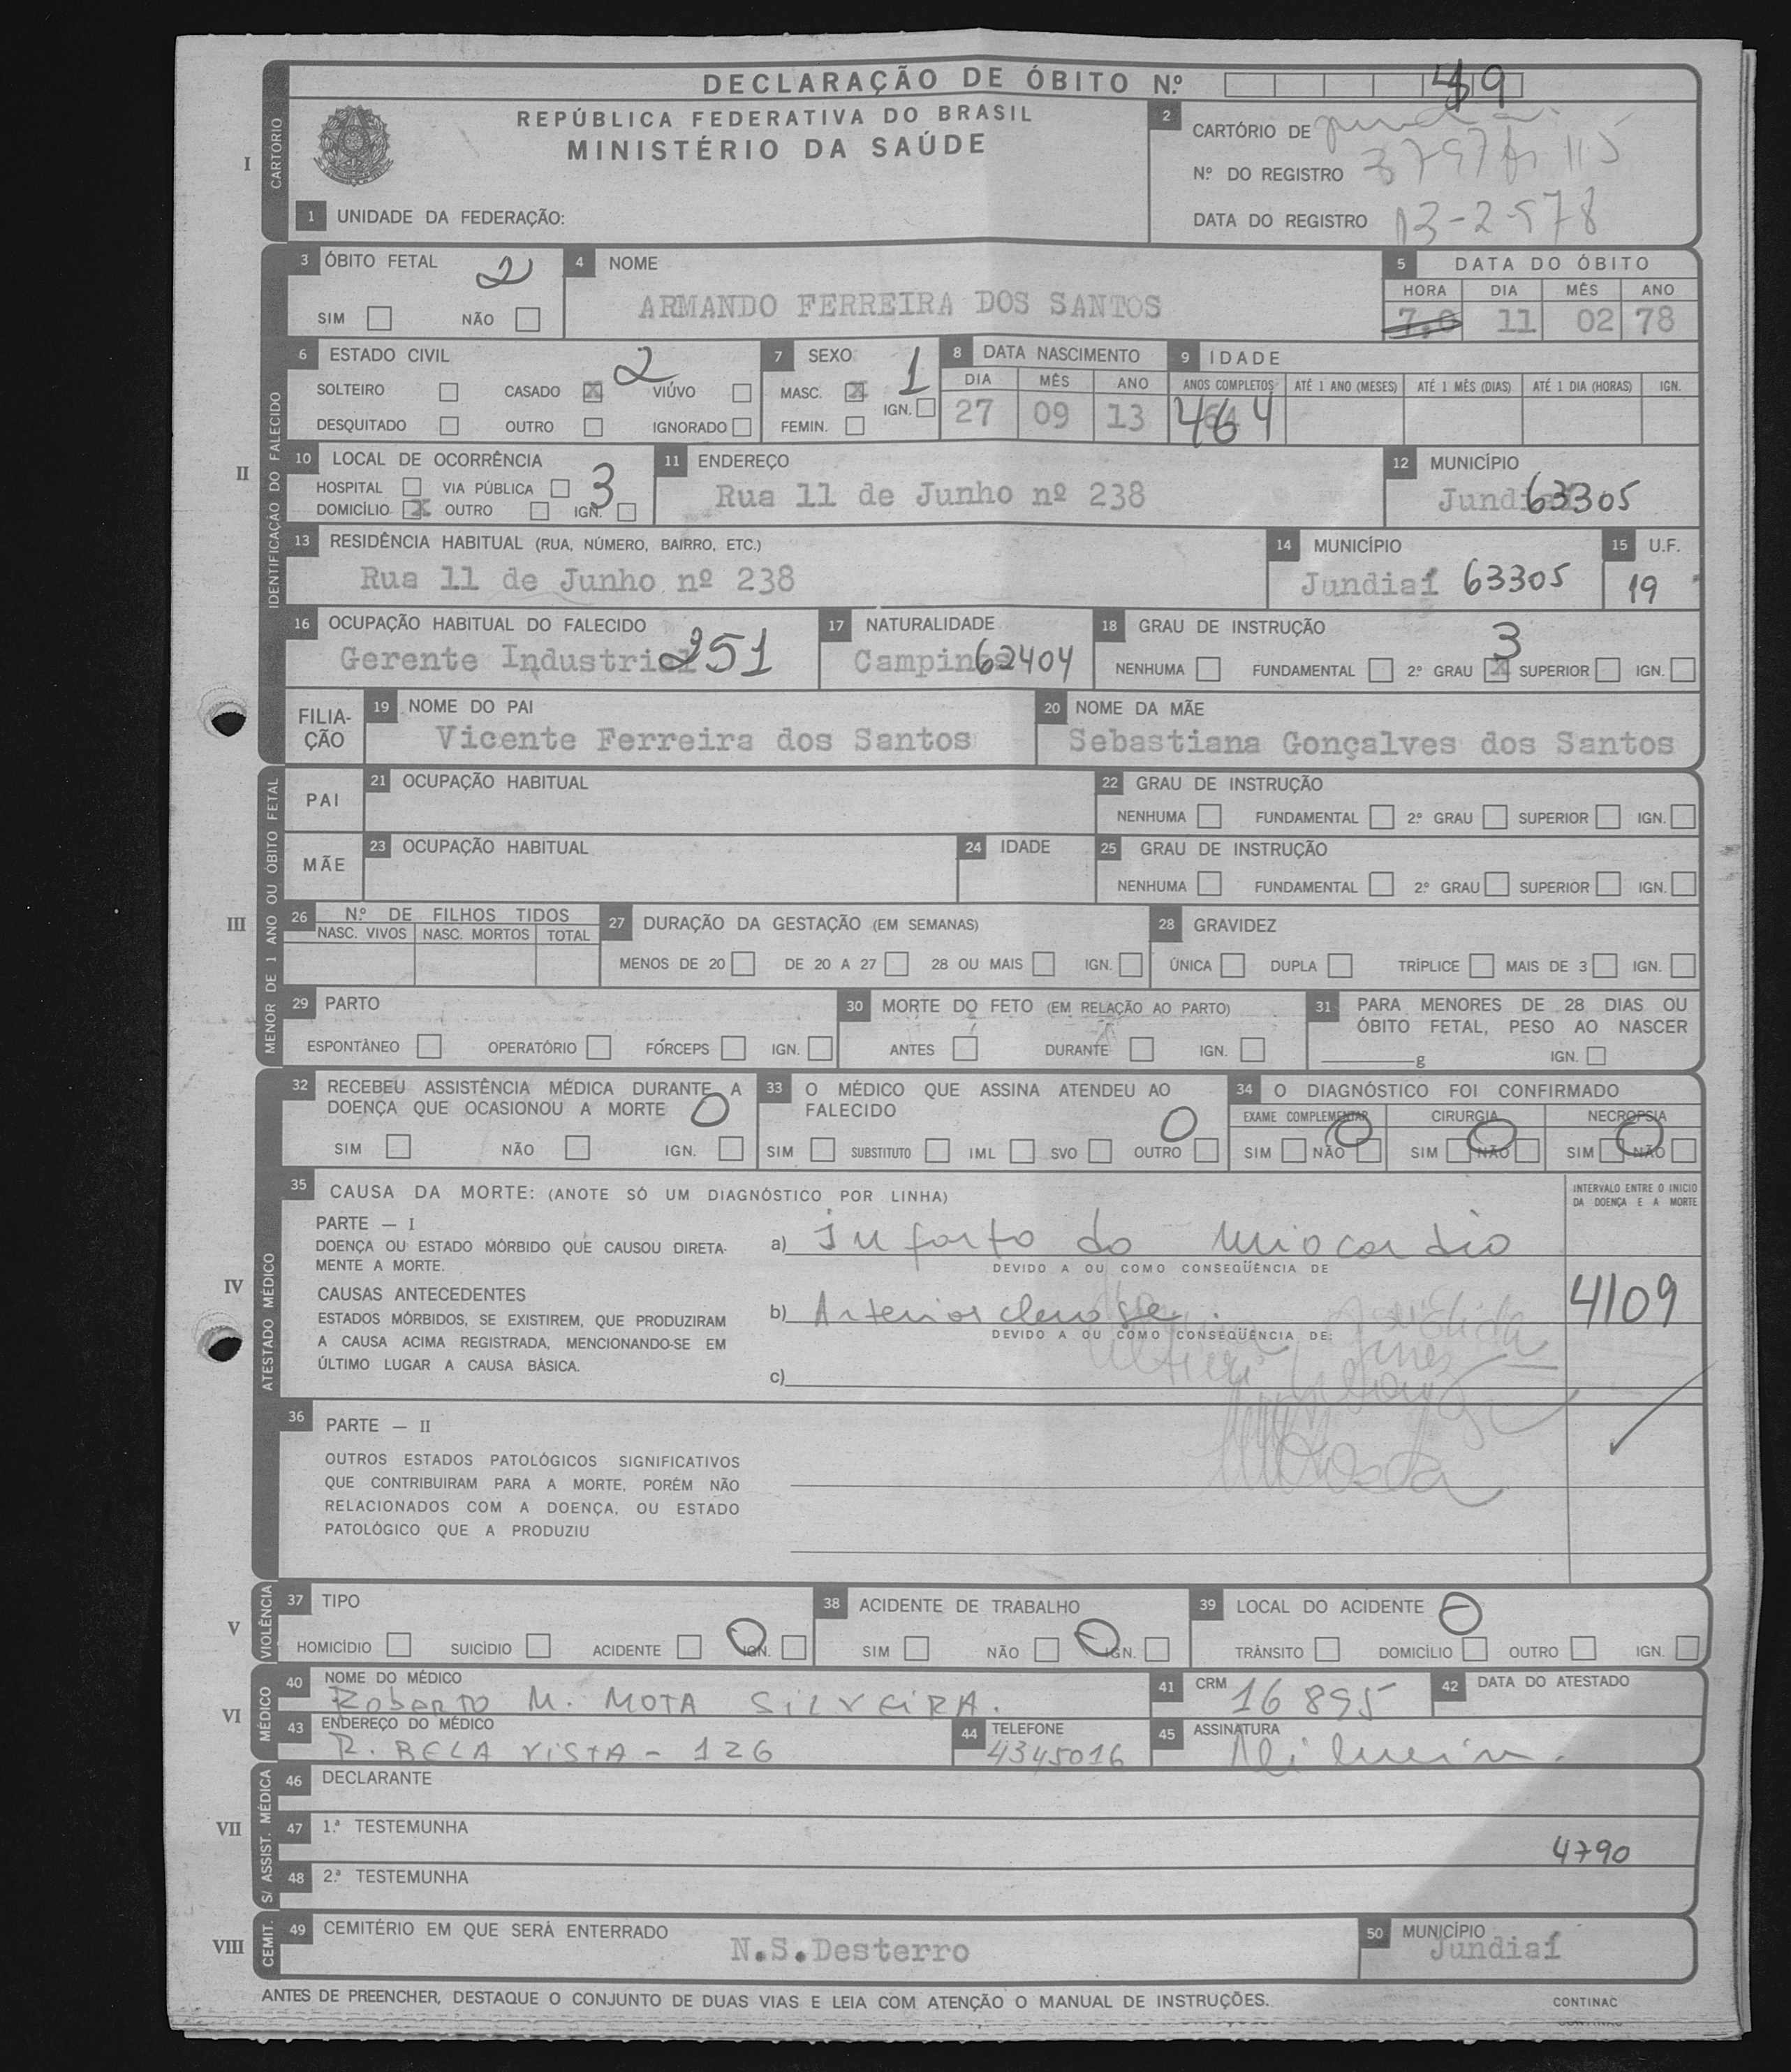 DECLARAÇÃO DE ÓBITO N.º 49
REPÚBLICA FEDERATIVA DO BRASIL
MINISTÉRIO DA SAÚDE
I
CARTÓRIO
1 UNIDADE DA FEDERAÇÃO:
2 CARTÓRIO DE
N.º DO REGISTRO
DATA DO REGISTRO 13-2-978
II
IDENTIFICAÇÃO DO FALECIDO
3 ÓBITO FETAL 2
SIM NÃO
4 NOME
ARMANDO FERREIRA DOS SANTOS
5 DATA DO ÓBITO
HORA DIA MÊS ANO
7,0 11 02 78
6 ESTADO CIVIL 2
SOLTEIRO CASADO X VIÚVO
DESQUITADO OUTRO IGNORADO
7 SEXO 1
MASC. X IGN.
FEMIN.
8 DATA NASCIMENTO
DIA MÊS ANO
27 09 13
9 IDADE
ANOS COMPLETOS ATÉ 1 ANO (MESES) ATÉ 1 MÊS (DIAS) ATÉ 1 DIA (HORAS) IGN.
464
10 LOCAL DE OCORRÊNCIA 3
HOSPITAL VIA PÚBLICA
DOMICÍLIO X OUTRO IGN.
11 ENDEREÇO
Rua 11 de Junho nº 238
12 MUNICÍPIO
Jundiaí 63305
13 RESIDÊNCIA HABITUAL (RUA, NÚMERO, BAIRRO, ETC.)
Rua 11 de Junho nº 238
14 MUNICÍPIO
Jundiaí 63305
15 U.F.
19
16 OCUPAÇÃO HABITUAL DO FALECIDO
Gerente Industrial 251
17 NATURALIDADE
Campinas 62404
18 GRAU DE INSTRUÇÃO 3
NENHUMA FUNDAMENTAL 2º GRAU X SUPERIOR IGN.
FILIAÇÃO
19 NOME DO PAI
Vicente Ferreira dos Santos
20 NOME DA MÃE
Sebastiana Gonçalves dos Santos
III
MENOR DE 1 ANO OU ÓBITO FETAL
PAI
21 OCUPAÇÃO HABITUAL
22 GRAU DE INSTRUÇÃO
NENHUMA FUNDAMENTAL 2º GRAU SUPERIOR IGN.
MÃE
23 OCUPAÇÃO HABITUAL
24 IDADE
25 GRAU DE INSTRUÇÃO
NENHUMA FUNDAMENTAL 2º GRAU SUPERIOR IGN.
26 N.º DE FILHOS TIDOS
NASC. VIVOS NASC. MORTOS TOTAL
27 DURAÇÃO DA GESTAÇÃO (EM SEMANAS)
MENOS DE 20 DE 20 A 27 28 OU MAIS IGN.
28 GRAVIDEZ
ÚNICA DUPLA TRÍPLICE MAIS DE 3 IGN.
29 PARTO
ESPONTÂNEO OPERATÓRIO FÓRCEPS IGN.
30 MORTE DO FETO (EM RELAÇÃO AO PARTO)
ANTES DURANTE IGN.
31 PARA MENORES DE 28 DIAS OU
ÓBITO FETAL, PESO AO NASCER
g IGN.
IV
ATESTADO MÉDICO
32 RECEBEU ASSISTÊNCIA MÉDICA DURANTE A
DOENÇA QUE OCASIONOU A MORTE 0
SIM NÃO IGN.
33 O MÉDICO QUE ASSINA ATENDEU AO
FALECIDO 0
SIM SUBSTITUTO IML SVO OUTRO
34 O DIAGNÓSTICO FOI CONFIRMADO
EXAME COMPLEMENTAR CIRURGIA NECROPSIA
0 0 0
SIM NÃO SIM NÃO SIM NÃO
35 CAUSA DA MORTE: (ANOTE SÓ UM DIAGNÓSTICO POR LINHA)
INTERVALO ENTRE O INICIO
DA DOENÇA E A MORTE
PARTE — I
DOENÇA OU ESTADO MÓRBIDO QUE CAUSOU DIRETA-
MENTE A MORTE.
a) Infarto do miocardio
DEVIDO A OU COMO CONSEQÜÊNCIA DE
CAUSAS ANTECEDENTES
ESTADOS MÓRBIDOS, SE EXISTIREM, QUE PRODUZIRAM
A CAUSA ACIMA REGISTRADA, MENCIONANDO-SE EM
ÚLTIMO LUGAR A CAUSA BÁSICA.
b) Arteriosclerose.
4109
DEVIDO A OU COMO CONSEQÜÊNCIA DE:
c)
36 PARTE — II
OUTROS ESTADOS PATOLÓGICOS SIGNIFICATIVOS
QUE CONTRIBUIRAM PARA A MORTE, PORÉM NÃO
RELACIONADOS COM A DOENÇA, OU ESTADO
PATOLÓGICO QUE A PRODUZIU
V
VIOLÊNCIA
37 TIPO
HOMICÍDIO SUICÍDIO ACIDENTE 0 IGN.
38 ACIDENTE DE TRABALHO
SIM NÃO 0 IGN.
39 LOCAL DO ACIDENTE 0
TRÂNSITO DOMICÍLIO OUTRO IGN.
VI
MÉDICO
40 NOME DO MÉDICO
Roberto M. MOTA SILVEIRA.
41 CRM 16895
42 DATA DO ATESTADO
43 ENDEREÇO DO MÉDICO
R. BELA VISTA - 126
44 TELEFONE
4345016
45 ASSINATURA
VII
S/ ASSIST. MÉDICA
46 DECLARANTE
47 1.ª TESTEMUNHA
4790
48 2.ª TESTEMUNHA
VIII
CEMIT.
49 CEMITÉRIO EM QUE SERÁ ENTERRADO
N.S.Desterro
50 MUNICÍPIO
Jundiaí
ANTES DE PREENCHER, DESTAQUE O CONJUNTO DE DUAS VIAS E LEIA COM ATENÇÃO O MANUAL DE INSTRUÇÕES.
CONTINAC